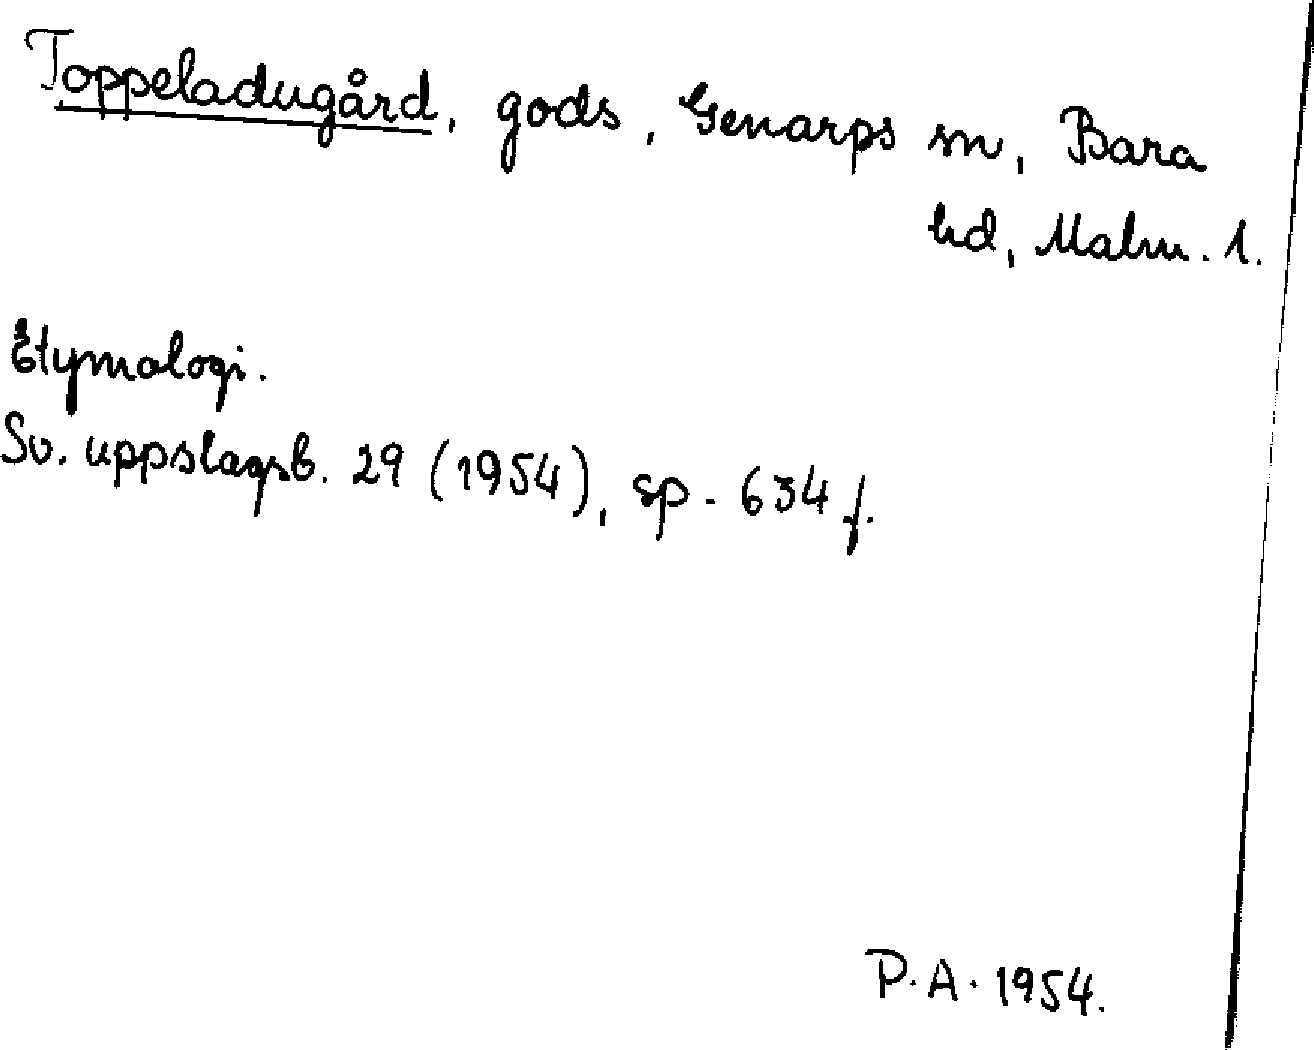 Toppeladugård, gods, Genarps sn, Bara
hd, Malm. l.
Etymologi.
Sv. uppslagsb. 29 (1954), sp. 634 f.
P.A. 1954.